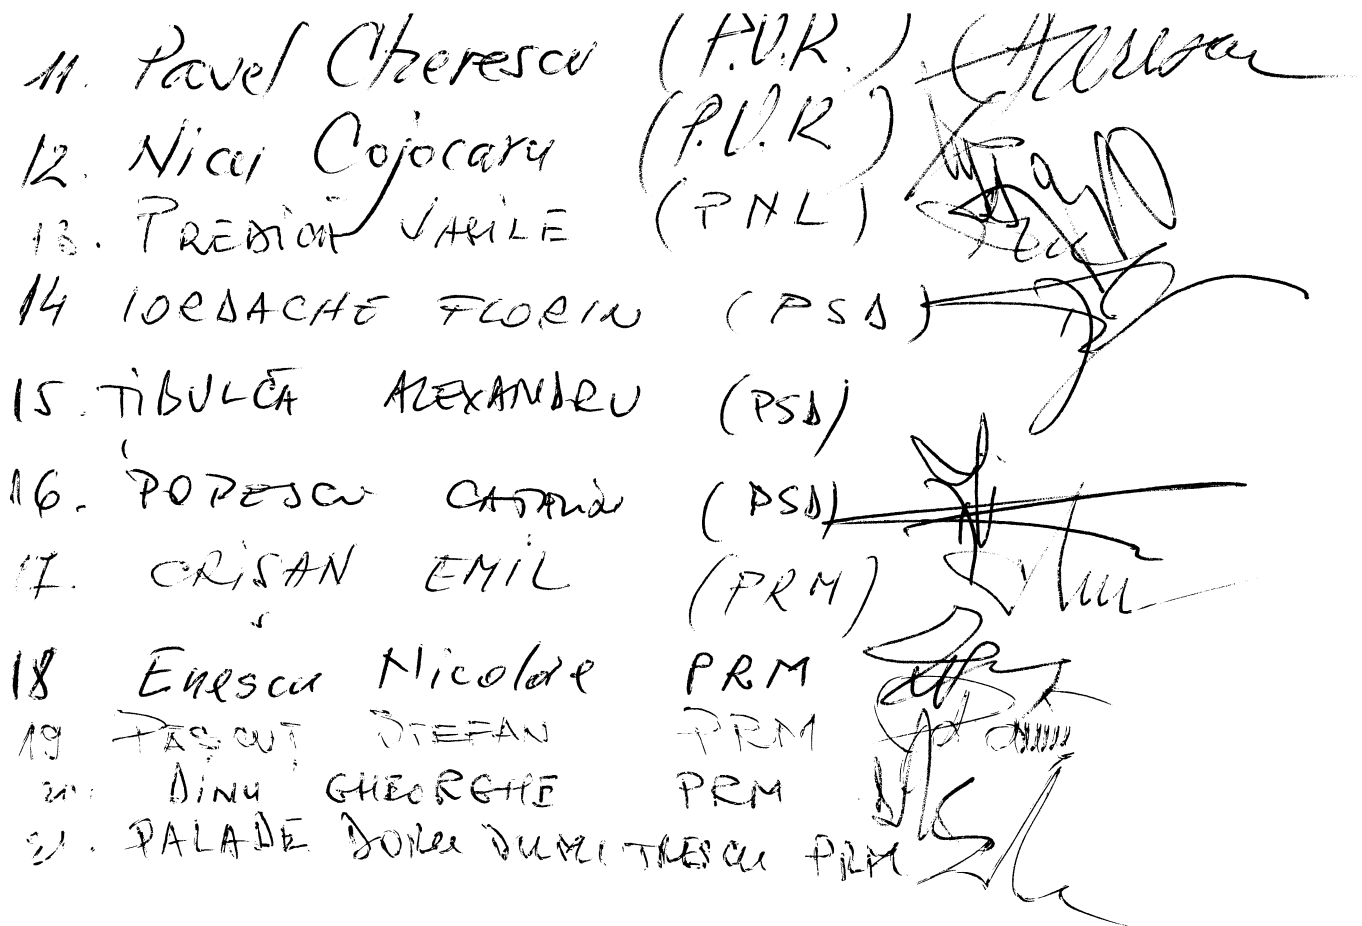 11. Pavel Cherescu (P.U.R.)
12. Nicu Cojocaru (P.U.R)
13. PREDICĂ VASILE (PNL)
14 IORDACHE FLORIN (PSD)
15. TIBULCĂ ALEXANDRU (PSD)
16. POPESCU CATALIN (PSD)
17. CRIŞAN EMIL (PRM)
18 Enescu Nicolae PRM
19 PĂŞCUŢ ŞTEFAN PRM
20. DINU GHEORGHE PRM
21. PALADE DORU DUMITRESCU PRM